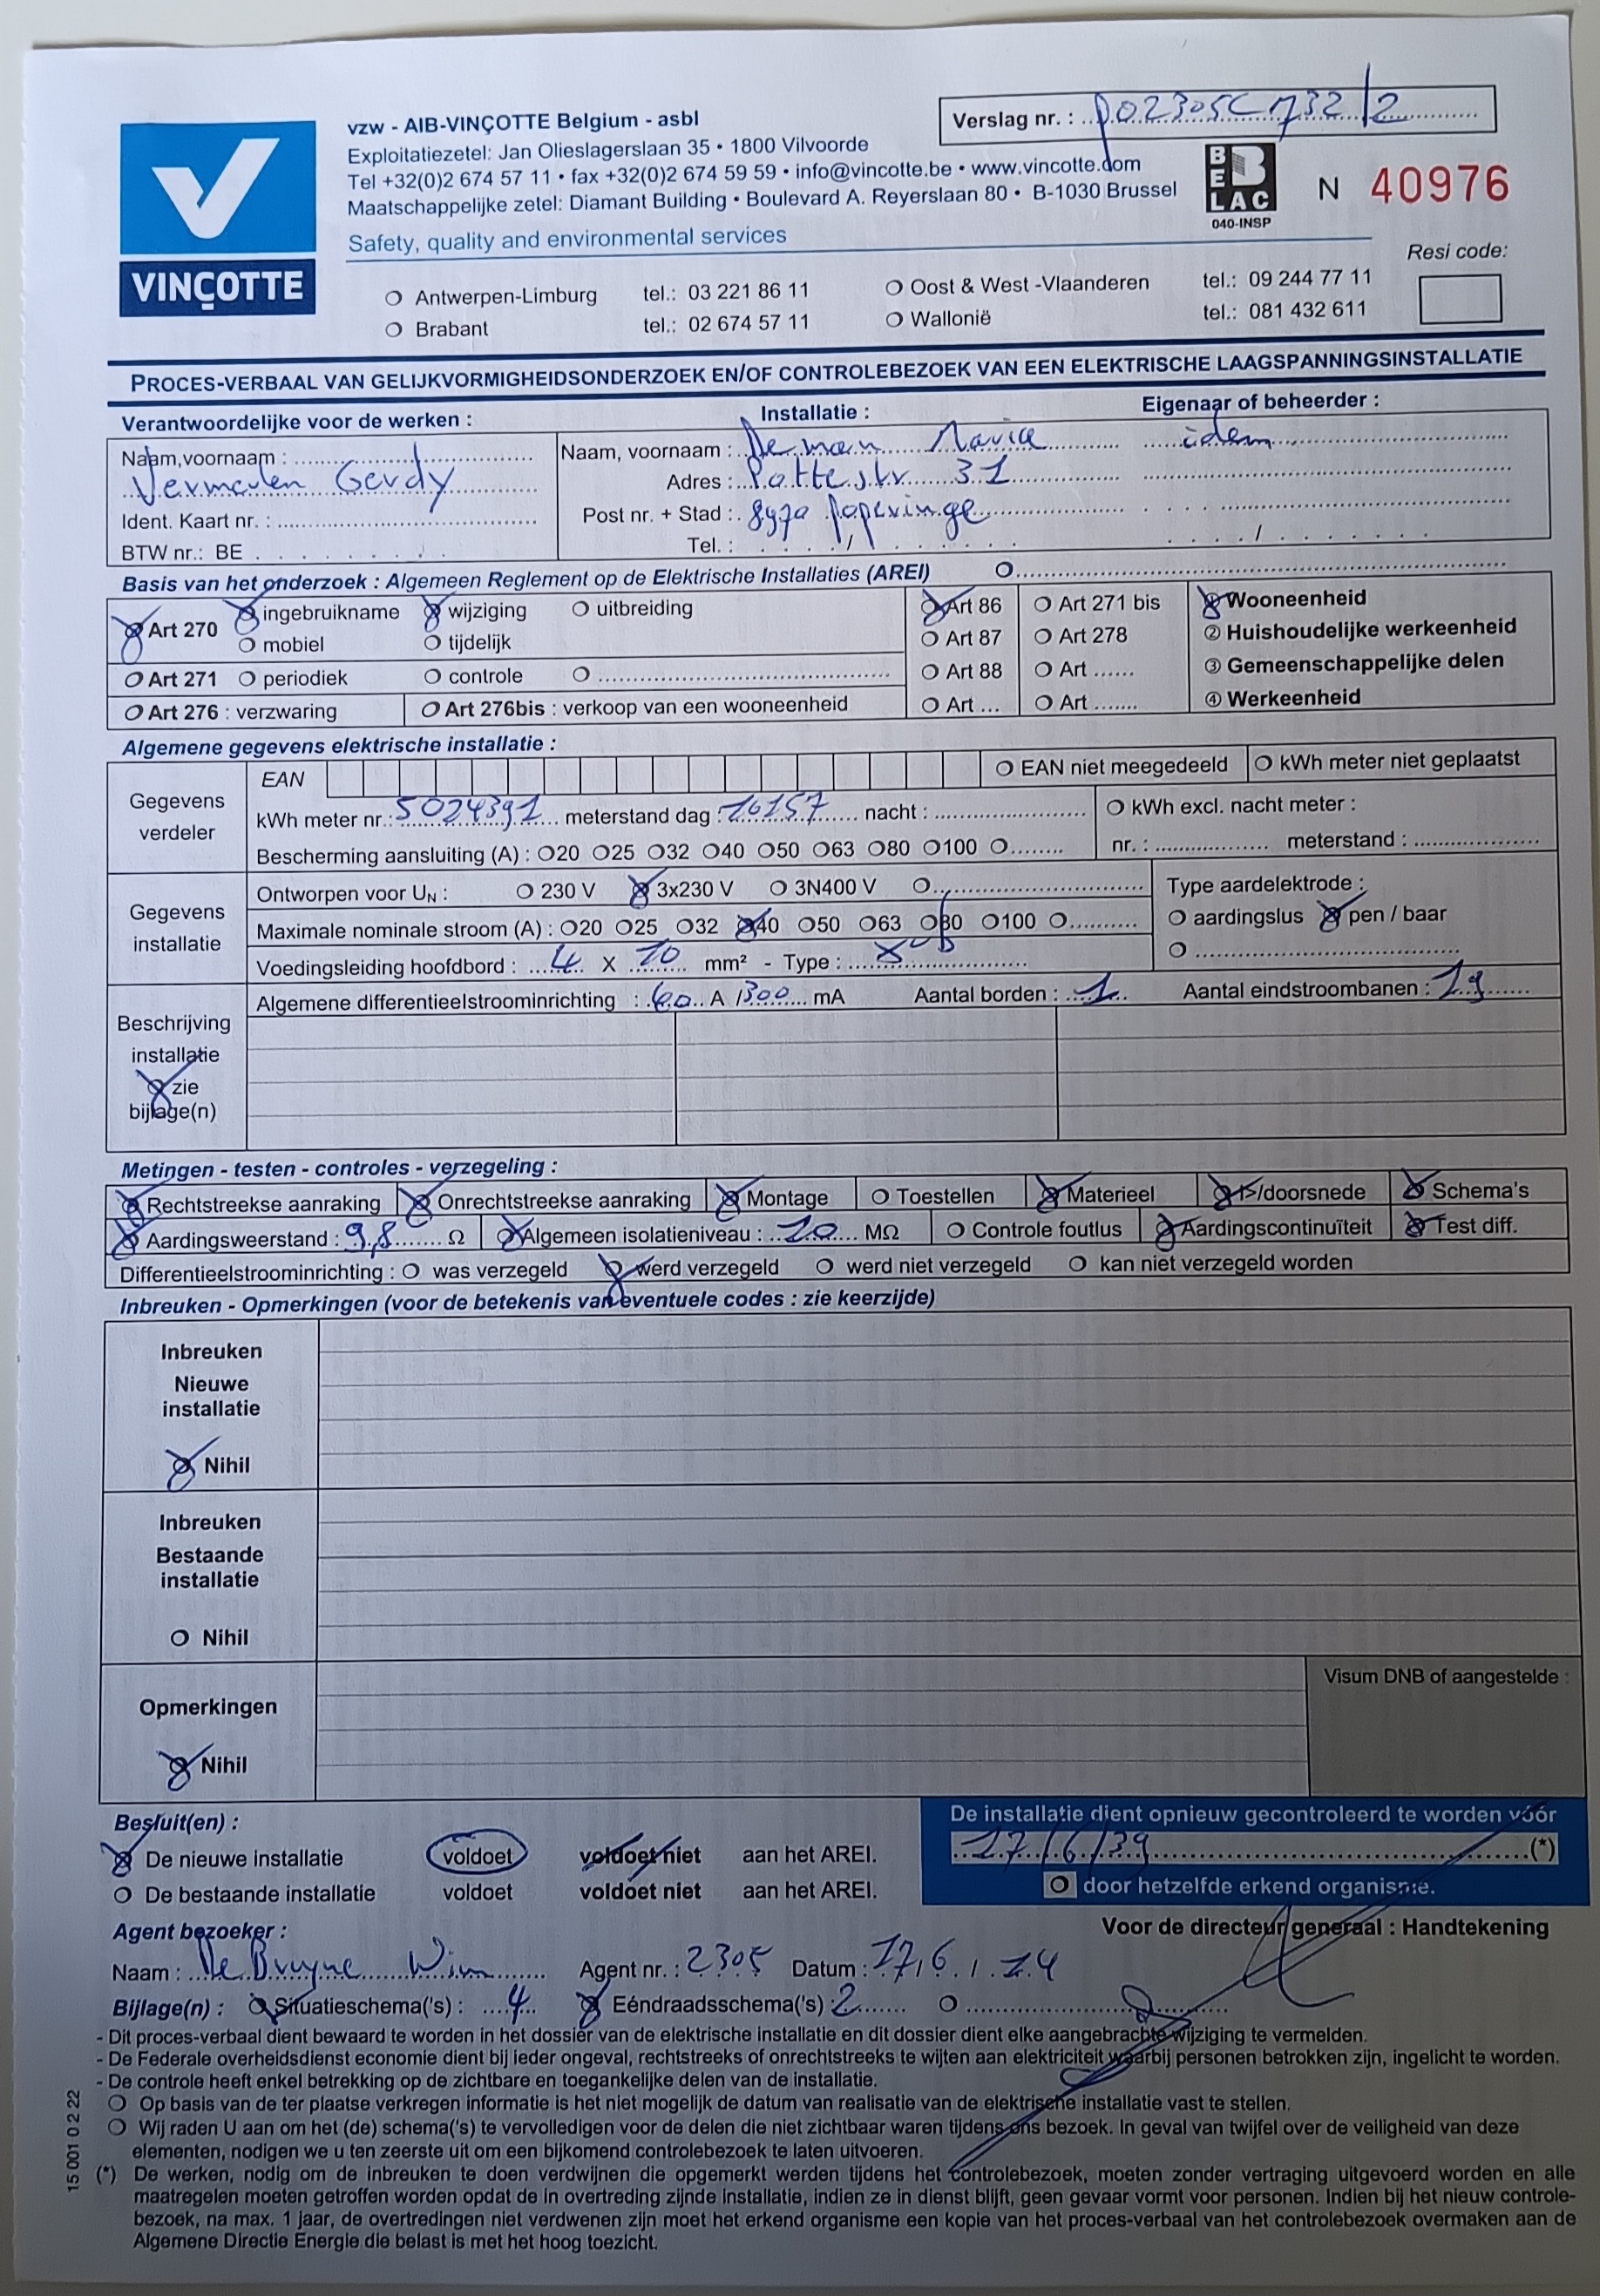 vzw - AIB-VINÇOTTE Belgium - asbl
Exploitatiezetel: Jan Olieslagerslaan 35 • 1800 Vilvoorde
Tel +32(0)2 674 57 11 • fax +32(0)2 674 59 59 • info@vincotte.be • www.vincotte.com
Maatschappelijke zetel: Diamant Building • Boulevard A. Reyerslaan 80 • B-1030 Brussel
Safety, quality and environmental services
VINÇOTTE
Verslag nr. :
BELAC
040-INSP
N 40976
Resi code:
Antwerpen-Limburg tel.: 03 221 86 11 Oost & West -Vlaanderen tel.: 09 244 77 11
Brabant tel.: 02 674 57 11 Wallonië tel.: 081 432 611
PROCES-VERBAAL VAN GELIJKVORMIGHEIDSONDERZOEK EN/OF CONTROLEBEZOEK VAN EEN ELEKTRISCHE LAAGSPANNINGSINSTALLATIE
Verantwoordelijke voor de werken : Installatie : Eigenaar of beheerder :
Naam,voornaam :
Vermeulen Gerdy
Ident. Kaart nr. :
BTW nr.: BE
Naam, voornaam : Deman Maria idem
Adres : Pottestr 31
Post nr. + Stad : 8970 Poperinge
Tel. : / /
Basis van het onderzoek : Algemeen Reglement op de Elektrische Installaties (AREI)
Art 270 ingebruikname wijziging uitbreiding Art 86 Art 271 bis ① Wooneenheid
mobiel tijdelijk Art 87 Art 278 ② Huishoudelijke werkeenheid
Art 271 periodiek controle Art 88 Art ...... ③ Gemeenschappelijke delen
Art 276 : verzwaring Art 276bis : verkoop van een wooneenheid Art ... Art ....... ④ Werkeenheid
Algemene gegevens elektrische installatie :
Gegevens verdeler
EAN EAN niet meegedeeld kWh meter niet geplaatst
kWh meter nr.: 5024391 meterstand dag : 16157 nacht : kWh excl. nacht meter :
Bescherming aansluiting (A) : 20 25 32 40 50 63 80 100 nr. : meterstand :
Gegevens installatie
Ontworpen voor UN : 230 V 3x230 V 3N400 V Type aardelektrode :
Maximale nominale stroom (A) : 20 25 32 40 50 63 80 100 aardingslus pen / baar
Voedingsleiding hoofdbord : 4 X 10 mm² - Type :
Algemene differentieelstroominrichting : 60 A / 300 mA Aantal borden : 1 Aantal eindstroombanen : 19
Beschrijving
installatie
zie
bijlage(n)
Metingen - testen - controles - verzegeling :
Rechtstreekse aanraking Onrechtstreekse aanraking Montage Toestellen Materieel I>/doorsnede Schema's
Aardingsweerstand : 9,8 Ω Algemeen isolatieniveau : 10 MΩ Controle foutlus Aardingscontinuïteit Test diff.
Differentieelstroominrichting : was verzegeld werd verzegeld werd niet verzegeld kan niet verzegeld worden
Inbreuken - Opmerkingen (voor de betekenis van eventuele codes : zie keerzijde)
Inbreuken
Nieuwe
installatie
Nihil
Inbreuken
Bestaande
installatie
Nihil
Opmerkingen
Nihil
Visum DNB of aangestelde :
Besluit(en) :
De nieuwe installatie voldoet voldoet niet aan het AREI.
De bestaande installatie voldoet voldoet niet aan het AREI.
De installatie dient opnieuw gecontroleerd te worden vóór
17/6/39 (*)
door hetzelfde erkend organisme.
Agent bezoeker : Voor de directeur generaal : Handtekening
Naam : De Bruyne Wim Agent nr. : 2305 Datum : 17/6/14
Bijlage(n) : Situatieschema('s) : 4 Eéndraadsschema('s) 2
- Dit proces-verbaal dient bewaard te worden in het dossier van de elektrische installatie en dit dossier dient elke aangebrachte wijziging te vermelden.
- De Federale overheidsdienst economie dient bij ieder ongeval, rechtstreeks of onrechtstreeks te wijten aan elektriciteit waarbij personen betrokken zijn, ingelicht te worden.
- De controle heeft enkel betrekking op de zichtbare en toegankelijke delen van de installatie.
Op basis van de ter plaatse verkregen informatie is het niet mogelijk de datum van realisatie van de elektrische installatie vast te stellen.
Wij raden U aan om het (de) schema('s) te vervolledigen voor de delen die niet zichtbaar waren tijdens ons bezoek. In geval van twijfel over de veiligheid van deze
elementen, nodigen we u ten zeerste uit om een bijkomend controlebezoek te laten uitvoeren.
(*) De werken, nodig om de inbreuken te doen verdwijnen die opgemerkt werden tijdens het controlebezoek, moeten zonder vertraging uitgevoerd worden en alle
maatregelen moeten getroffen worden opdat de in overtreding zijnde installatie, indien ze in dienst blijft, geen gevaar vormt voor personen. Indien bij het nieuw controle-
bezoek, na max. 1 jaar, de overtredingen niet verdwenen zijn moet het erkend organisme een kopie van het proces-verbaal van het controlebezoek overmaken aan de
Algemene Directie Energie die belast is met het hoog toezicht.
15 001 0 2 22